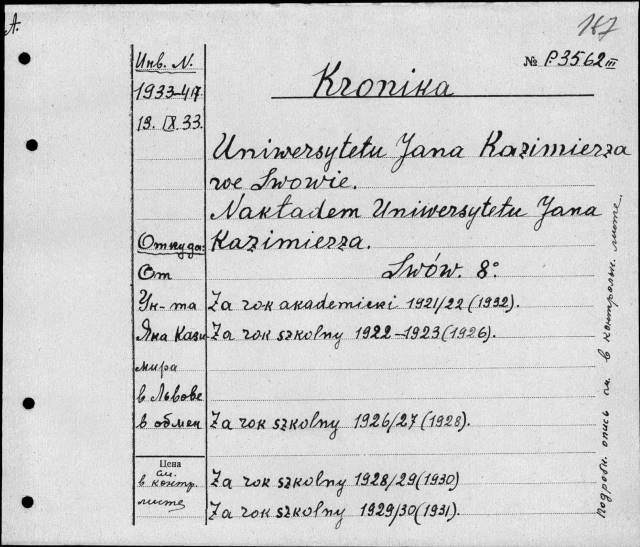 А.
187
Инв. N.
1933-417
13. IX.33.
№ P3562 III
Kronika
Uniwersytetu Jana Kazimierza
we Lwowie.
Nakładem Uniwersytetu Jana
Kazimierza.
Lwów. 8°.
Откуда:
От
Ун-та
Яна Кази
мира
в Львове
в обмен
Цена
см.
в контр.
листе
Za rok akademicki 1921/22 (1932).
Za rok szkolny 1922-1923 (1926).
Za rok szkolny 1926/27 (1928).
Za rok szkolny 1928/29 (1930)
Za rok szkolny 1929/30 (1931).
Подробн. опись см. в контрольн. листе.